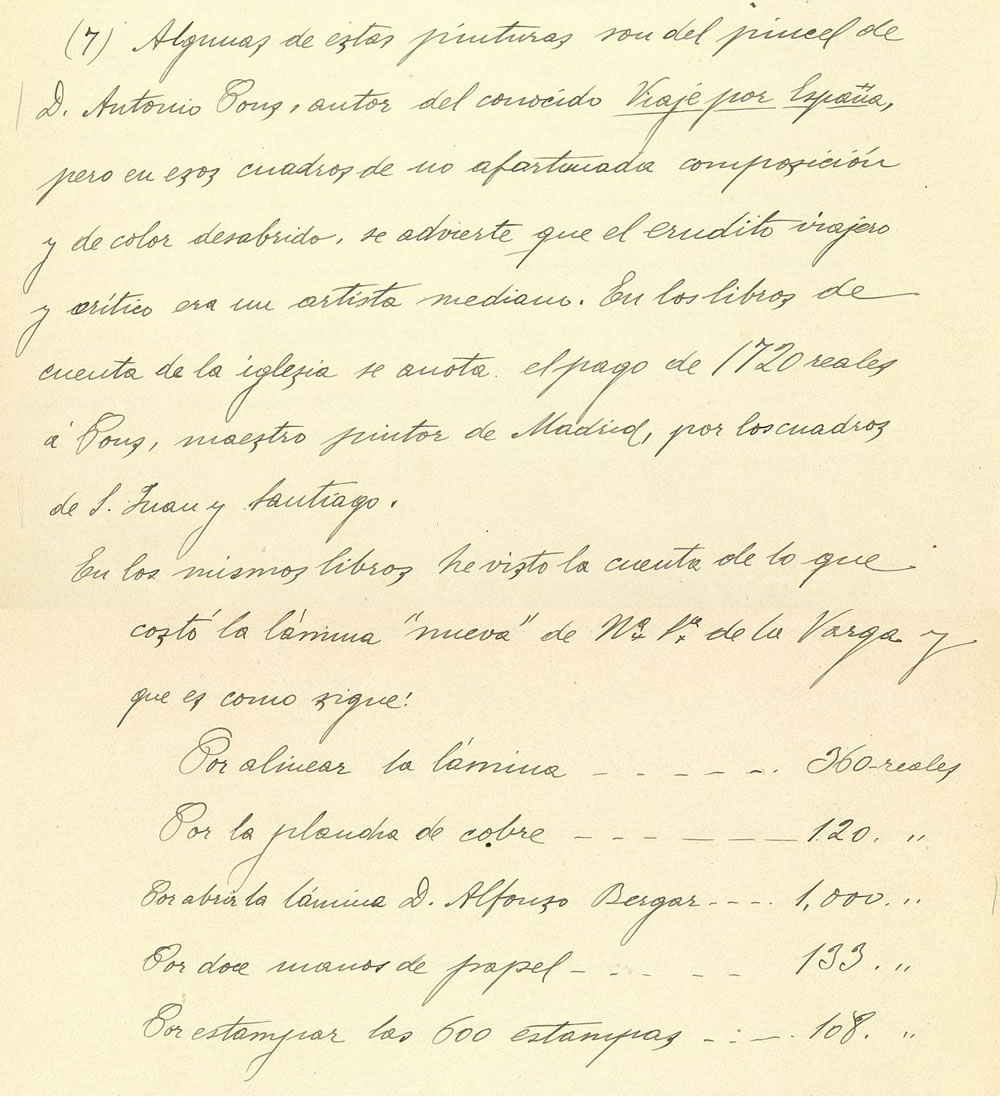 (7) Algunas de estas pinturas son del pincel de
D. Antonio Ponz, autor del conocido Viaje por España,
pero en esos cuadros de no afortunada composición
y de color desabrido, se advierte que el erudito viajero
y crítico era un artista mediano. En los libros de
cuenta de la iglesia se anota el pago de 1720 reales
á Ponz, maestro pintor de Madrid, por los cuadros
de S. Juan y Santiago.
En los mismos libros he visto la cuenta de lo que
costó la lámina "nueva" de Nª Sª de la Varga y
que es como sigue:
Por alinear la lámina - - - - - - 360 reales
Por la plancha de cobre - - - - - - 120. "
Por abrir la lámina D. Alfonso Bergar - - - - 1,000. "
Por doce manos de papel - - - - - 133. "
Por estampar las 600 estampas - - - - 108. "